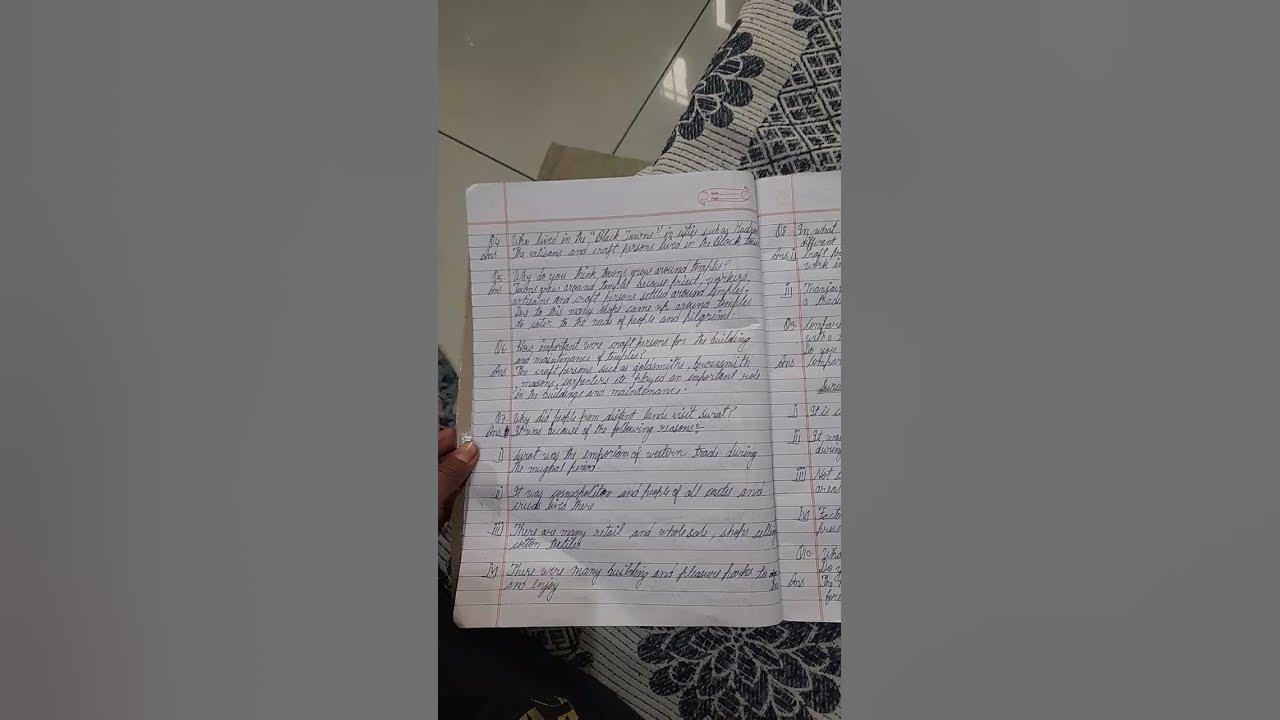 Q4 Who lived in the "Black Towns" in cities such as Madras
Ans The artisans and craft persons lived in the Black Town
Q5 Why do you think towns grew around temples?
Ans Towns grew around temples because priest, workers,
artisans and craft persons settled around temples.
Due to this many shops came up around temples
to cater to the needs of people and pilgrims.
Q6. How important were craft persons for the building
and maintenance of temples?
Ans The craft persons such as goldsmiths,
masons, carpenters etc played an important role
in the buildings and maintenance.
Q7. Why did people from distant lands visit Surat?
Ans It was because of the following reasons:-
i) Surat was the emporium of western trade during
the mughal period.
ii) It was cosmopoliton and people of all castes and
creeds lived there
iii) There are many retail and wholesale, shops selling
cotton textiles
iv) There were many building and pleasure parks to
and enjoy
Q8 In what
different
Ans i) Craft
work in
ii)
a trad
Q9. Compare
with a
Do you
Ans Compar
Sura
i) It is
ii) It was
during
iii) Not
areas
iv) Facto
prese
Q10.
Do y
Ans The